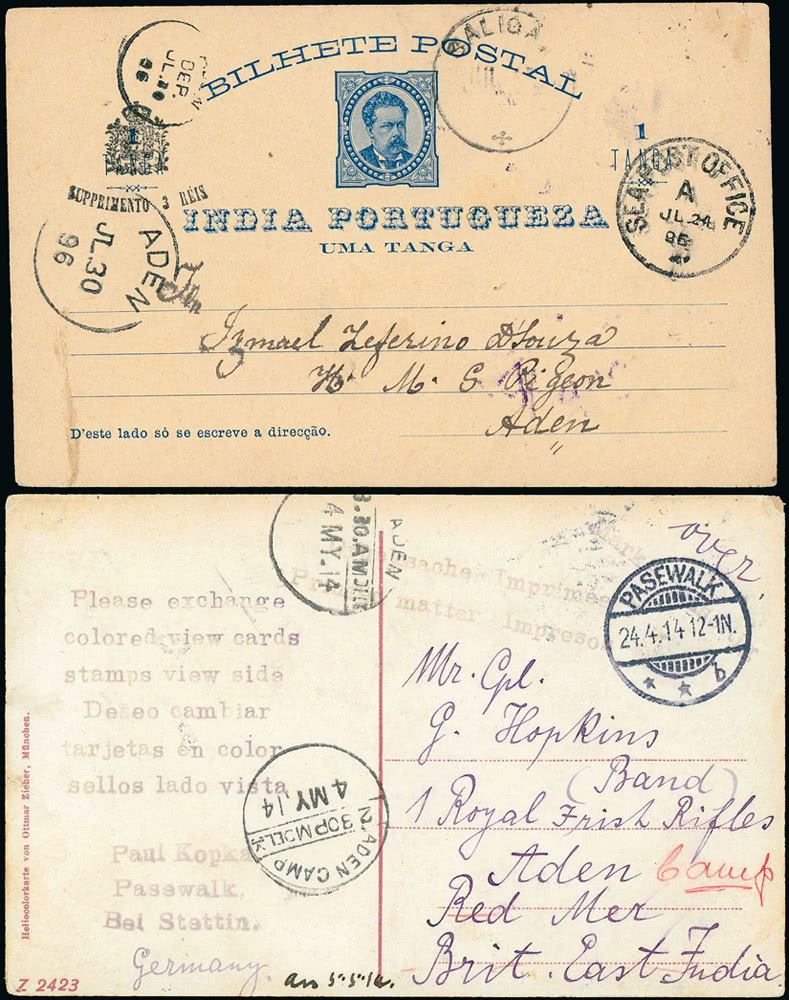 BILHETE POSTAL
DEP.
JL.30
96
SALIGA
1
TANGA
SUPPRIMENTO 3 RÉIS
INDIA PORTUGUEZA
UMA TANGA
SEA POST OFFICE
A
ADEN
JL.30
96
Ismael Zeferino D'Souza
H. M. S Pigeon
Aden
D'este lado só se escreve a direcção.
ADEN
3.30.AM DELY
4 MY.14
over.
Imprimés
matter Impresos
PASEWALK
24.4.14 12-1N.
b
Please exchange
colored view cards
stamps view side
Deseo cambiar
tarjetas en color
sellos lado vista
Paul Kopka
Pasewalk,
Bei Stettin.
Germany.
ADEN CAMP
2.30PM DELY
4 MY.14
Mr. Cpl.
G. Hopkins
(Band)
1 Royal Frish Rifles
Aden Camp
Red Mer
Brit. East India
Heliocolorkarte von Ottmar Zieher, München.
Z 2423